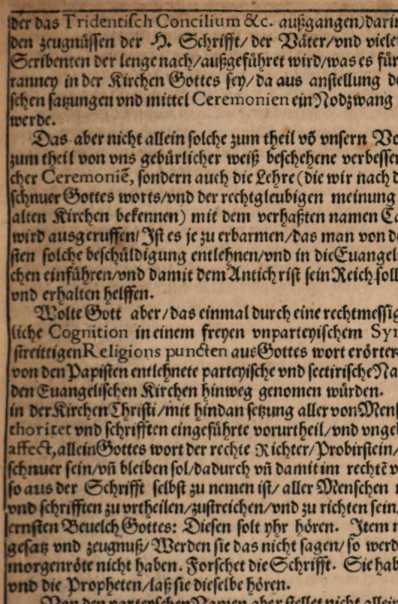 der das Tridentisch Concilium &c. außgangen/ darin
den zeugnüssen der H. Schrifft/ der Väter/ vnd viele
Scribenten der lenge nach/ außgeführet wird/ was es für
ranney in der Kirchen Gottes sey/ da aus anstellung de
schen satzungen vnd mittel Ceremonien ein Nodzwang
werde.
Das aber nicht allein solche zum theil võ vnsern Vo
zum theil von vns gebürlicher weiß beschehene verbesser
cher Ceremoniẽ, sondern auch die Lehre (die wir nach d
schnuer Gottes worts/ vnd der rechtgleubigen meinung
alten Kirchen bekennen) mit dem verhaßten namen Ca
wird ausgeruffen/ Ist es je zu erbarmen/ das man von de
sten solche beschüldigung entlehnen/ vnd in die Euangel
chen einführen/ vnd damit dem Antichrist sein Reich soll
vnd erhalten helffen.
Wolte Gott aber/ das einmal durch eine rechtmessig
liche Cognition in einem freyen vnparteyischem Syn
streittigen Religions puncten aus Gottes wort erörter
von den Papisten entlehnete parteyische vnd sectirische Na
den Euangelischen Kirchen hinweg genomen würden.
in der Kirchen Christi/ mit hindan setzung aller von Mens
thoritet vnd schrifften eingeführte vorurtheil/ vnd vngeb
affect, allein Gottes wort der rechte Richter/ Probirstein/
schnuer sein/ vñ bleiben sol/ dadurch vñ damit im rechtẽ v
so aus der Schrifft selbst zu nemen ist/ aller Menschen
vnd schrifften zu vrtheilen/ zustreichen/ vnd zu richten sein
ernsten Beuelch Gottes: Diesen solt yhr hören. Item
gesatz vnd zeugnuß/ Werden sie das nicht sagen/ so werd
morgenröte nicht haben. Forschet die Schrifft. Sie hab
vnd die Propheten/ laß sie dieselbe hören.